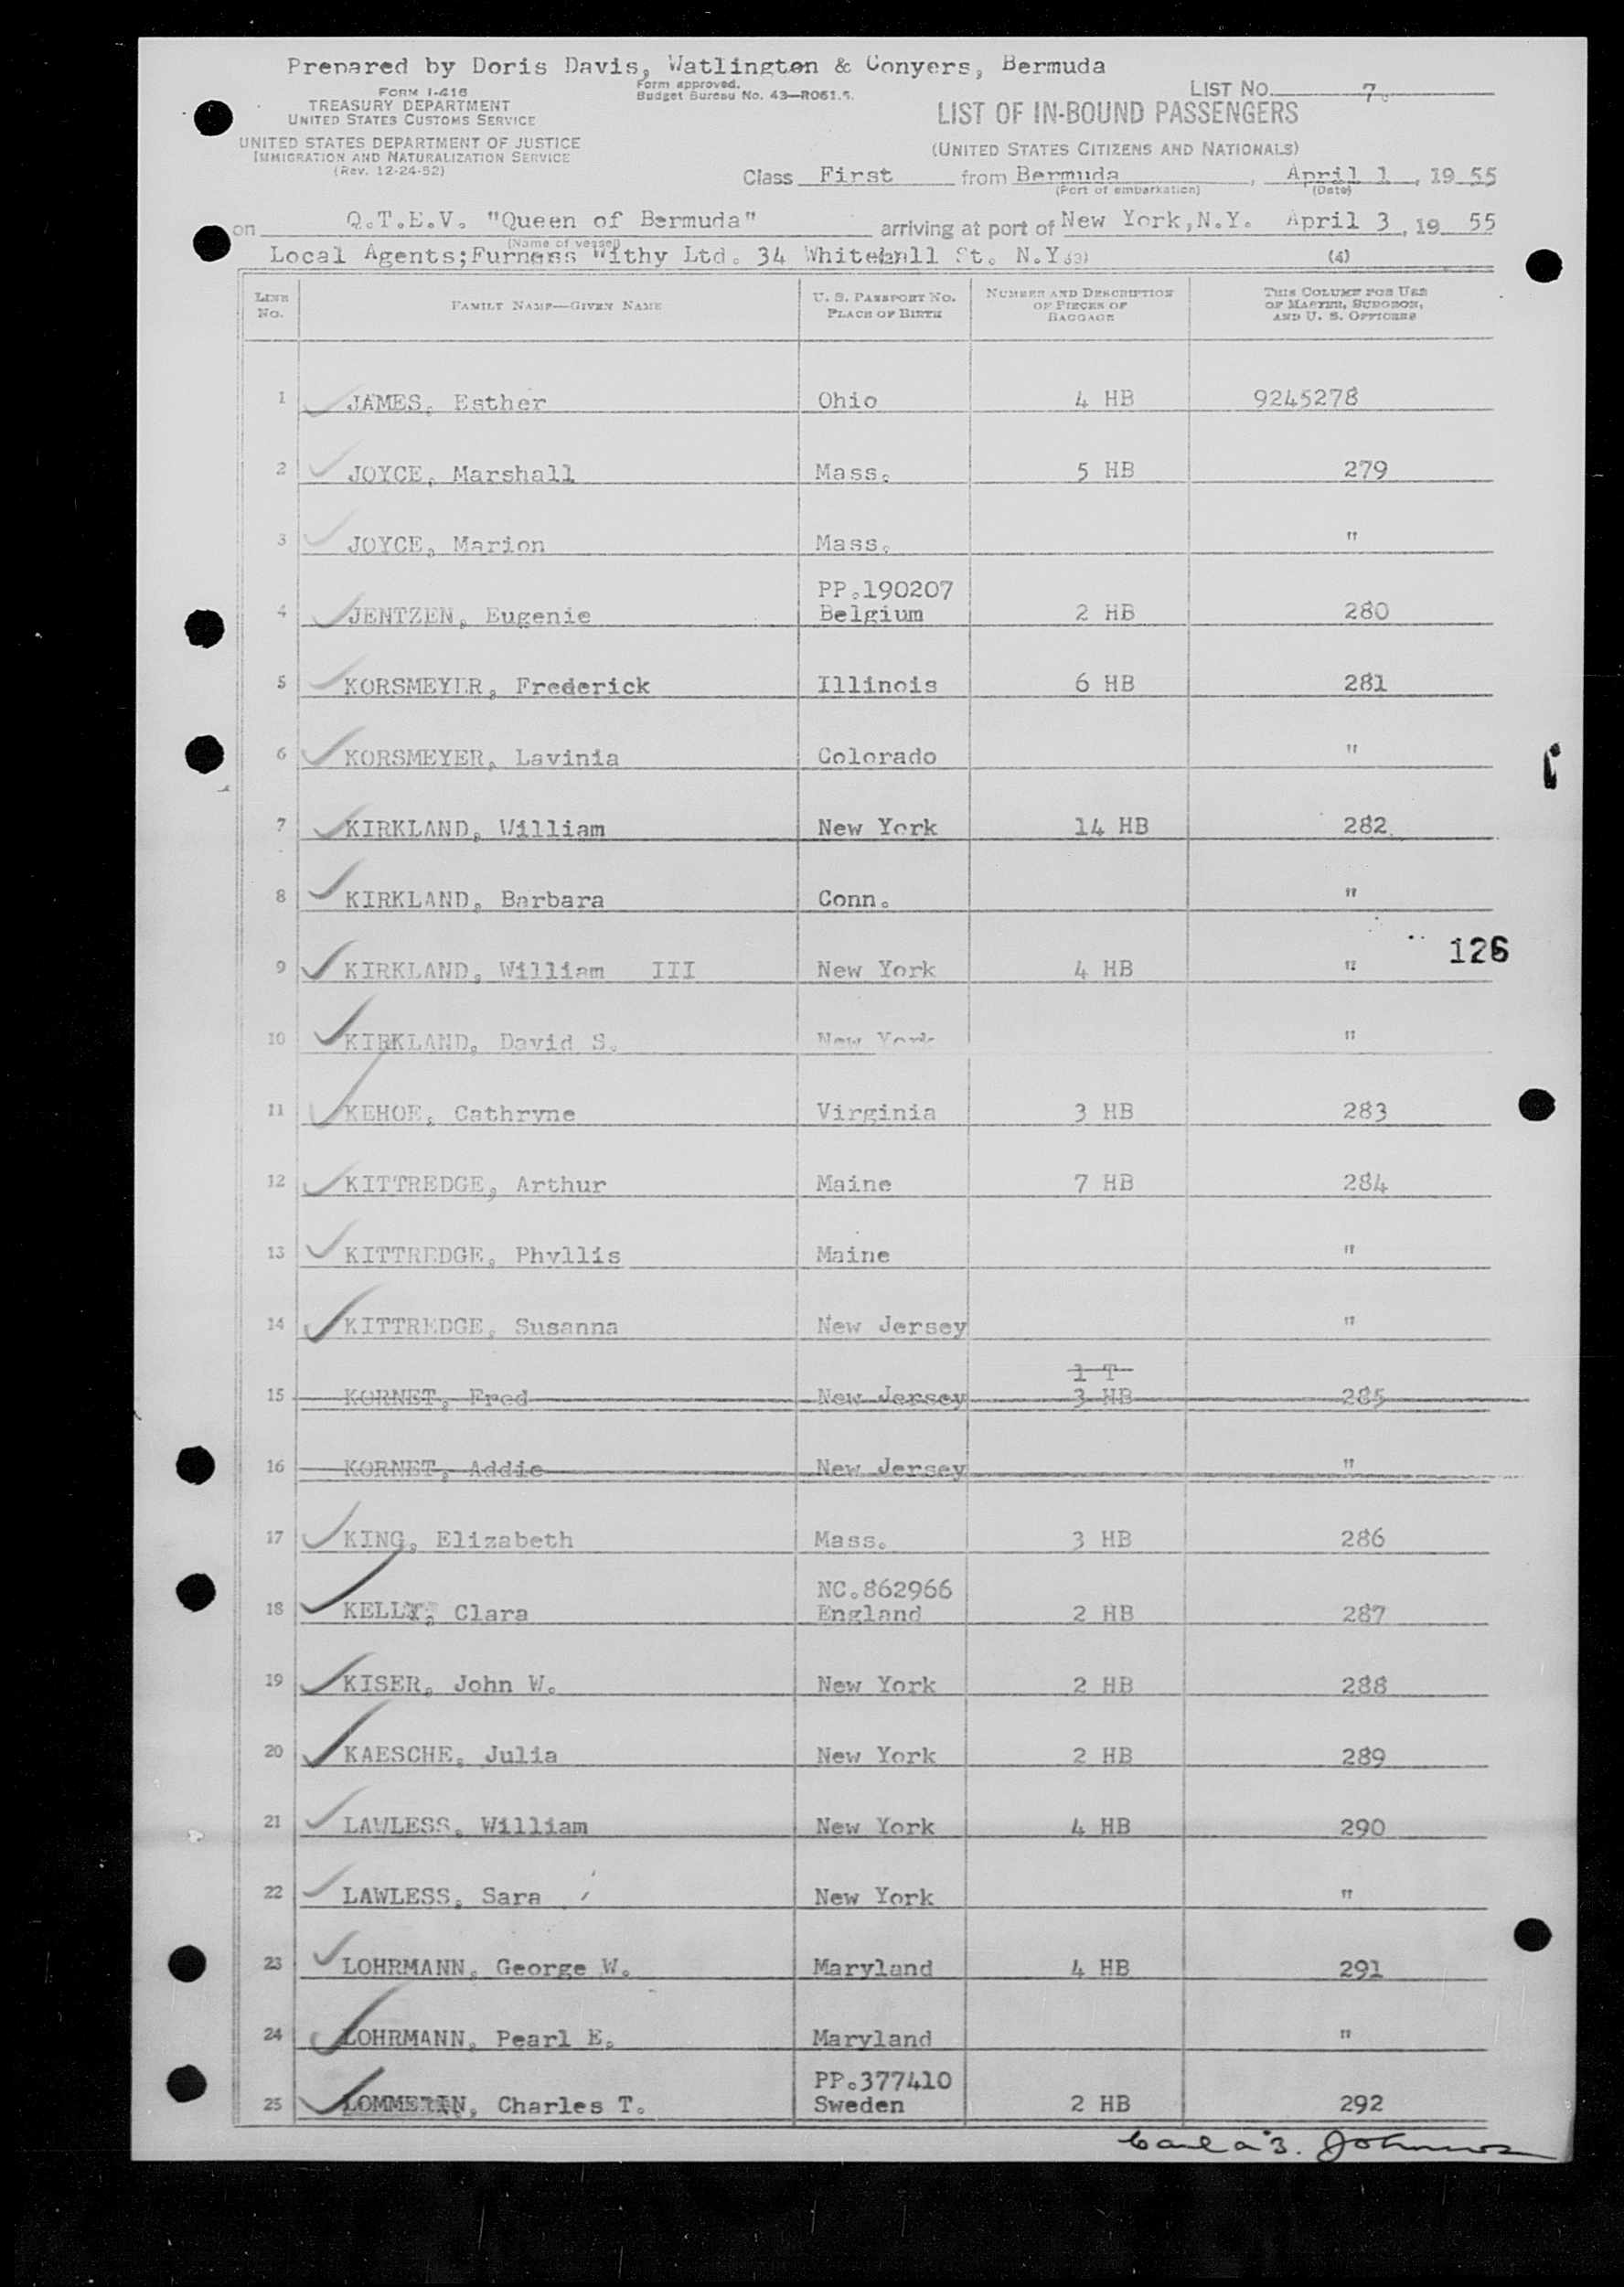 Prepared by Doris Davis, Watlington & Conyers, Bermuda
Form approved.
Budget Bureau No. 43—R061.5.
FORM I-418
TREASURY DEPARTMENT
UNITED STATES CUSTOMS SERVICE
UNITED STATES DEPARTMENT OF JUSTICE
IMMIGRATION AND NATURALIZATION SERVICE
(Rev. 12-24-52)
LIST NO. 7.
LIST OF IN-BOUND PASSENGERS
(UNITED STATES CITIZENS AND NATIONALS)
Class First from Bermuda, April 1, 1955
(Port of embarkation) (Date)
on Q.T.E.V. "Queen of Bermuda" arriving at port of New York, N.Y. April 3, 1955
(Name of vessel)
Local Agents; Furness Withy Ltd. 34 Whitehall St. N.Y. (3) (4)
LINE No. FAMILY NAME—GIVEN NAME U. S. PASSPORT NO. PLACE OF BIRTH NUMBER AND DESCRIPTION OF PIECES OF BAGGAGE THIS COLUMN FOR USE OF MASTER, SURGEON, AND U. S. OFFICERS
1 JAMES, Esther Ohio 4 HB 9245278
2 JOYCE, Marshall Mass. 5 HB 279
3 JOYCE, Marion Mass. "
4 JENTZEN, Eugenie PP.190207 Belgium 2 HB 280
5 KORSMEYER, Frederick Illinois 6 HB 281
6 KORSMEYER, Lavinia Colorado "
7 KIRKLAND, William New York 14 HB 282
8 KIRKLAND, Barbara Conn. "
9 KIRKLAND, William III New York 4 HB " 126
10 KIRKLAND, David S. New York "
11 KEHOE, Cathryne Virginia 3 HB 283
12 KITTREDGE, Arthur Maine 7 HB 284
13 KITTREDGE, Phyllis Maine "
14 KITTREDGE, Susanna New Jersey "
15 KORNET, Fred New Jersey 1 T 3 HB 285
16 KORNET, Addie New Jersey "
17 KING, Elizabeth Mass. 3 HB 286
18 KELLY, Clara NC.862966 England 2 HB 287
19 KISER, John W. New York 2 HB 288
20 KAESCHE, Julia New York 2 HB 289
21 LAWLESS, William New York 4 HB 290
22 LAWLESS, Sara New York "
23 LOHRMANN, George W. Maryland 4 HB 291
24 LOHRMANN, Pearl E. Maryland "
25 Charles T. PP.377410 Sweden 2 HB 292